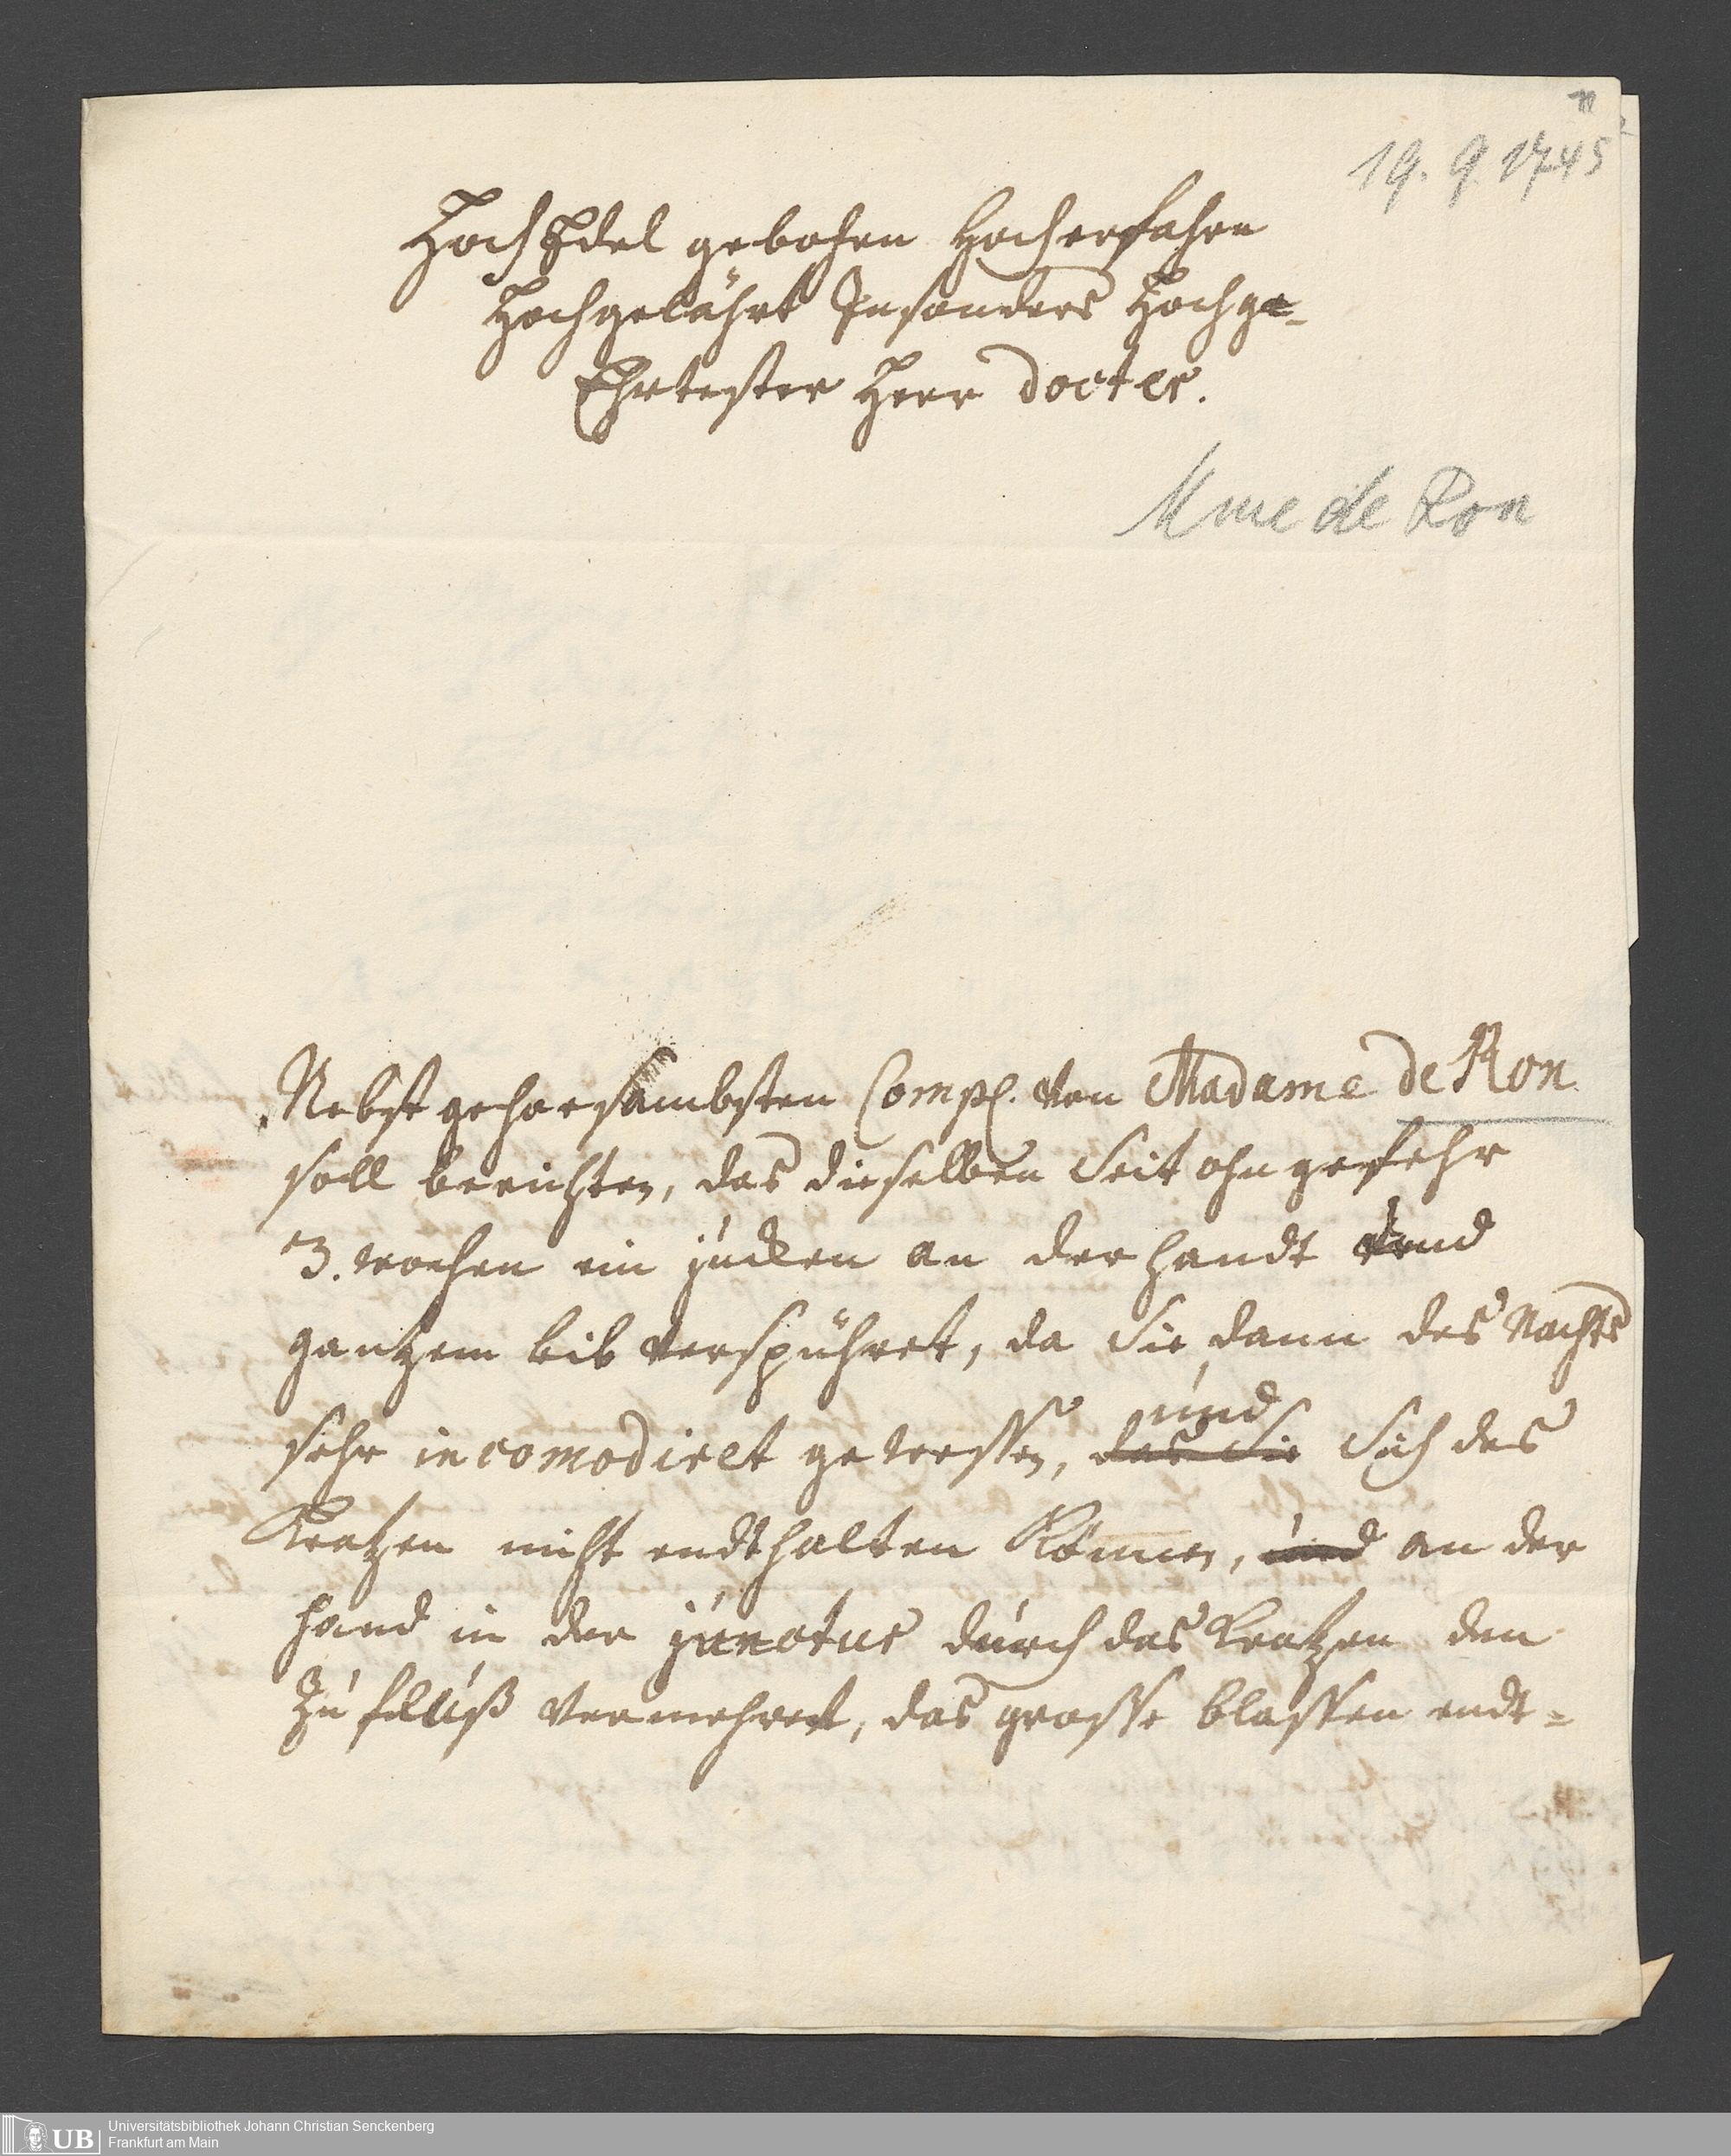 19. 9. 1745
HochEdel gebohren Hocherfahrn
Hochgelährt Insonders Hochge-
Ehrtester Herr Docter.
Mme de Ron
Nebst gehorsambsten Compl. von Madame de Ron
soll berichten, das dieselben Seit ohngefehr
3. wochen ein jucken an der Handt und
gantzem leib verspühret, da Sie dann des Nachts
sehr incomodiret gewessen, das Sie und Sich des
Kratzen nicht endthalten Können, und an der
Hand in der junctur durch das Kratzen den
Zu fluß vermehret, das grosse blassen endt=
UB
Universitätsbibliothek Johann Christian Senckenberg
Frankfurt am Main